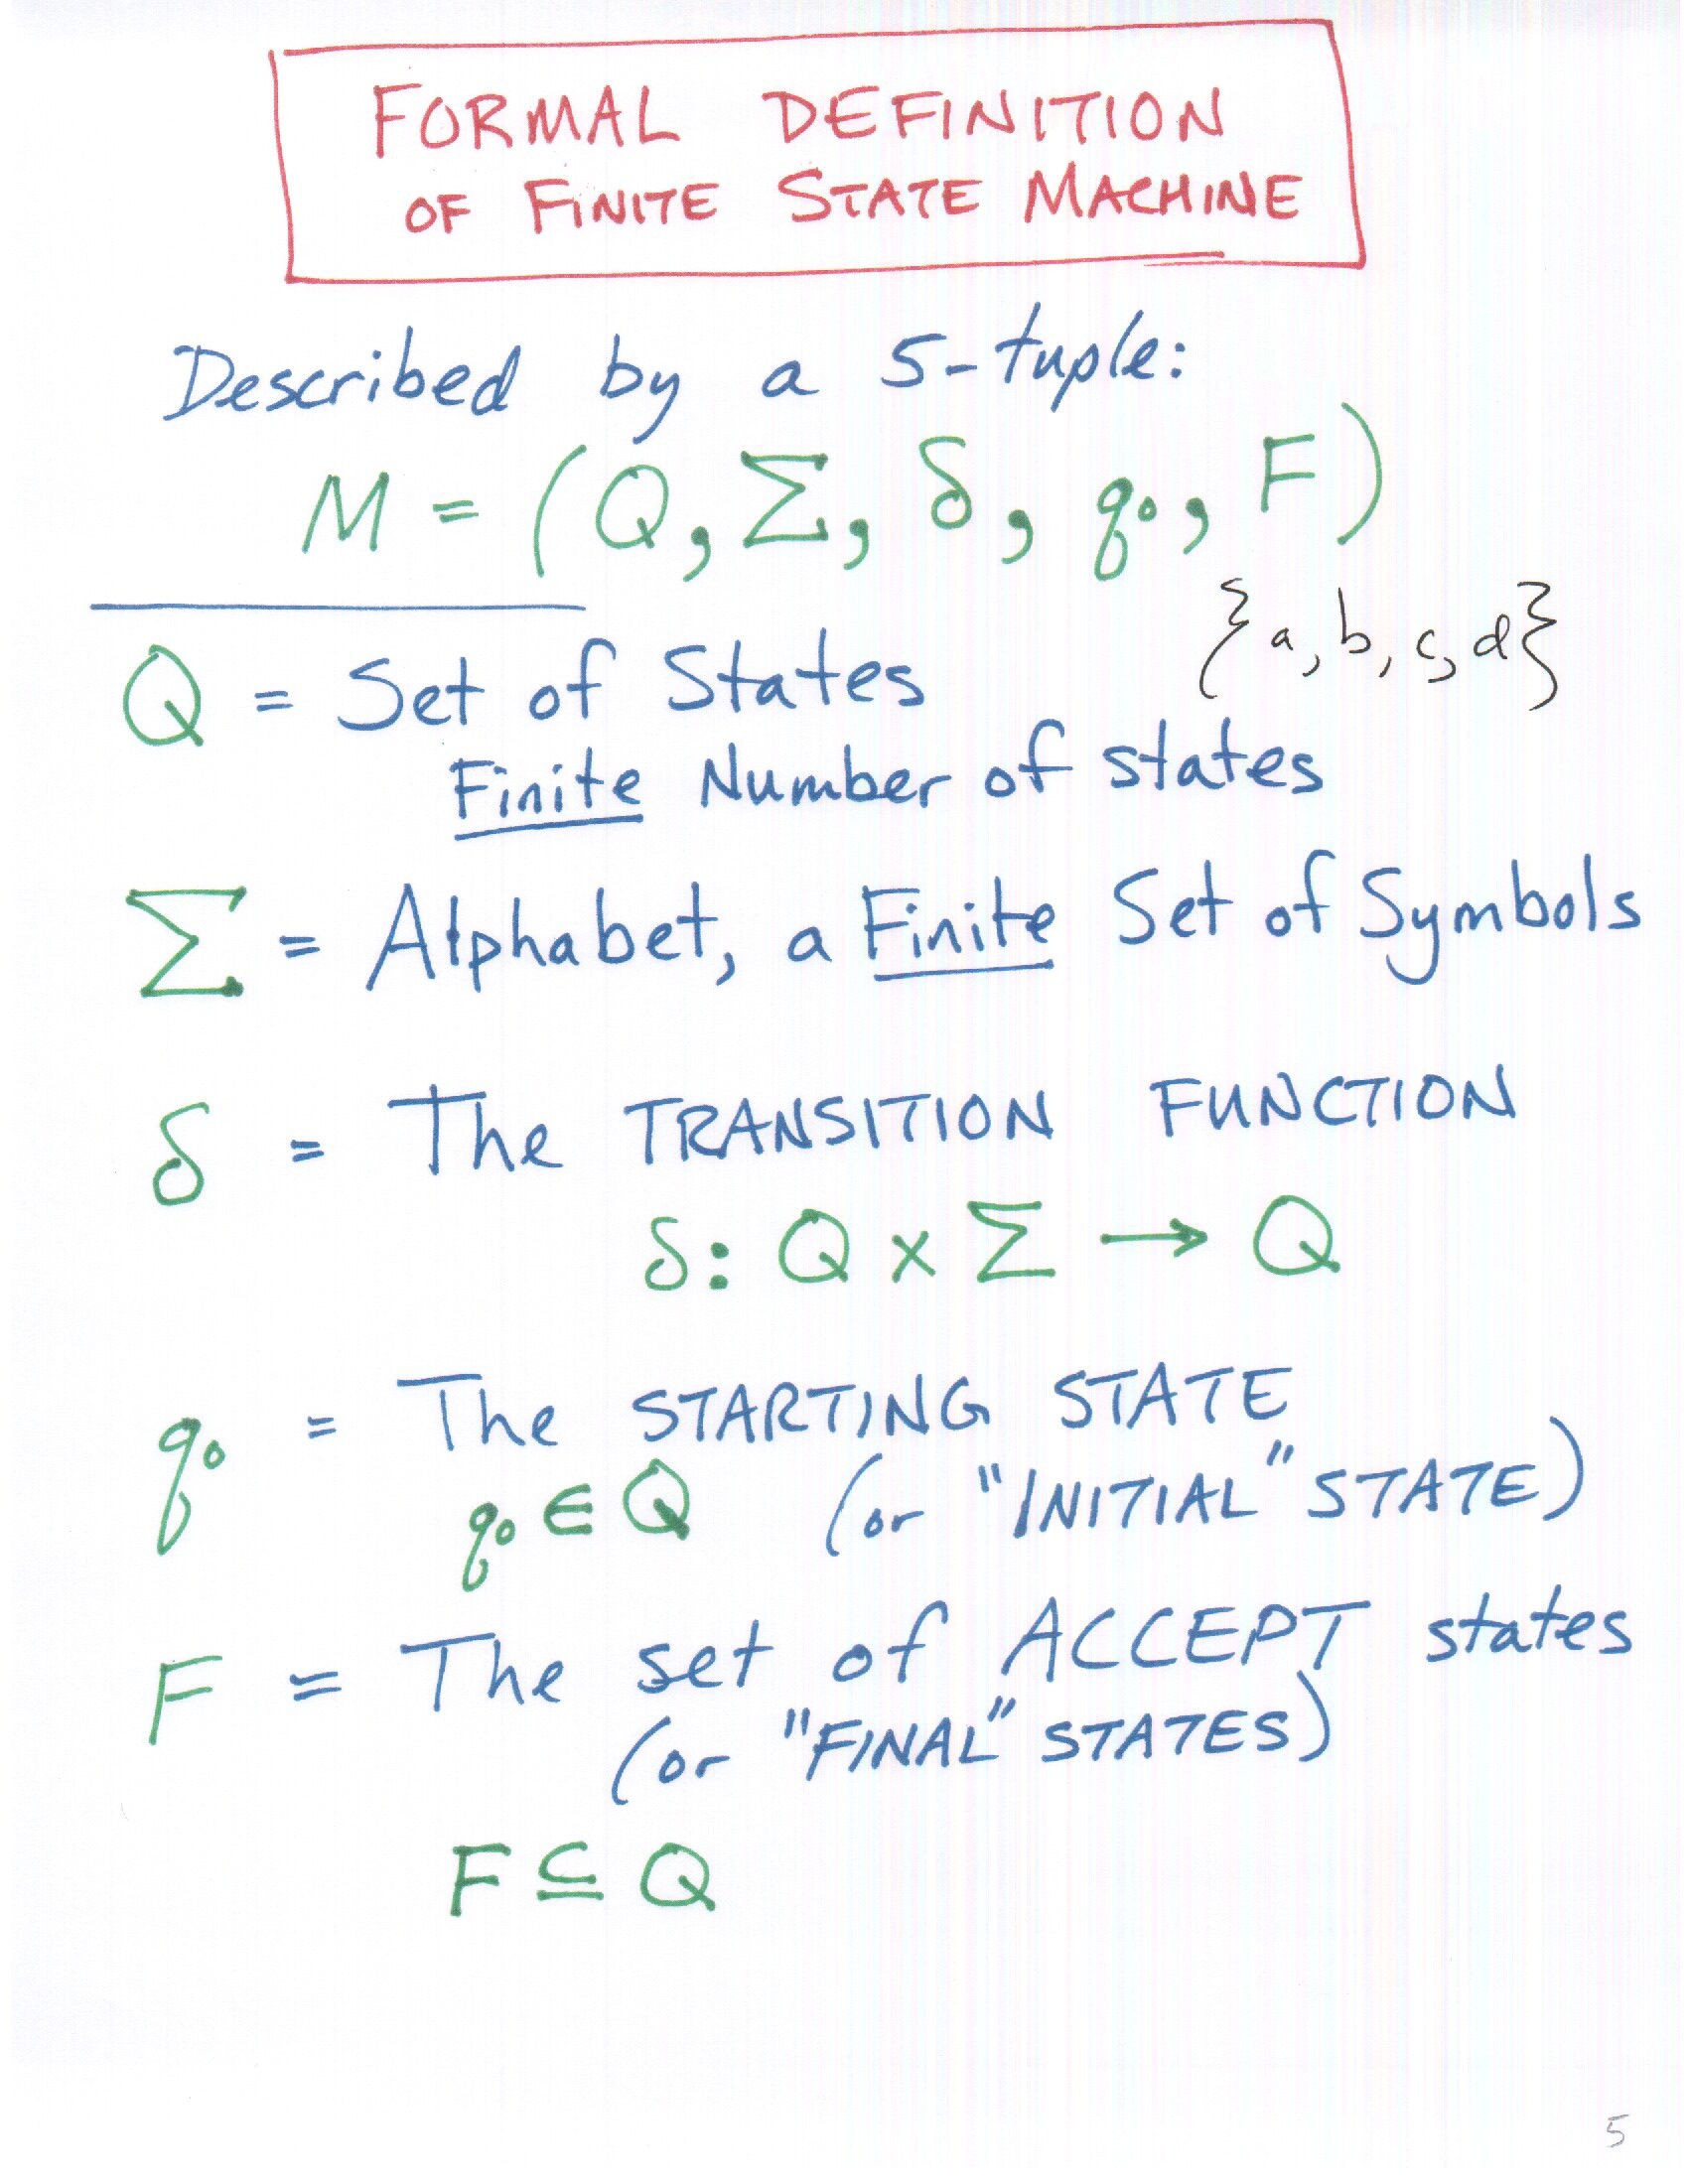 FORMAL DEFINITION
OF FINITE STATE MACHINE
Described by a 5-tuple:
M = (Q, Σ, δ, q₀, F)
{a, b, c, d}
Q = Set of States
Finite Number of states
Σ = Alphabet, a Finite Set of Symbols
δ = The TRANSITION FUNCTION
δ: Q × Σ → Q
q₀ = The STARTING STATE
q₀ ∈ Q (or "INITIAL" STATE)
F = The set of ACCEPT states
(or "FINAL" STATES)
F ⊆ Q
5